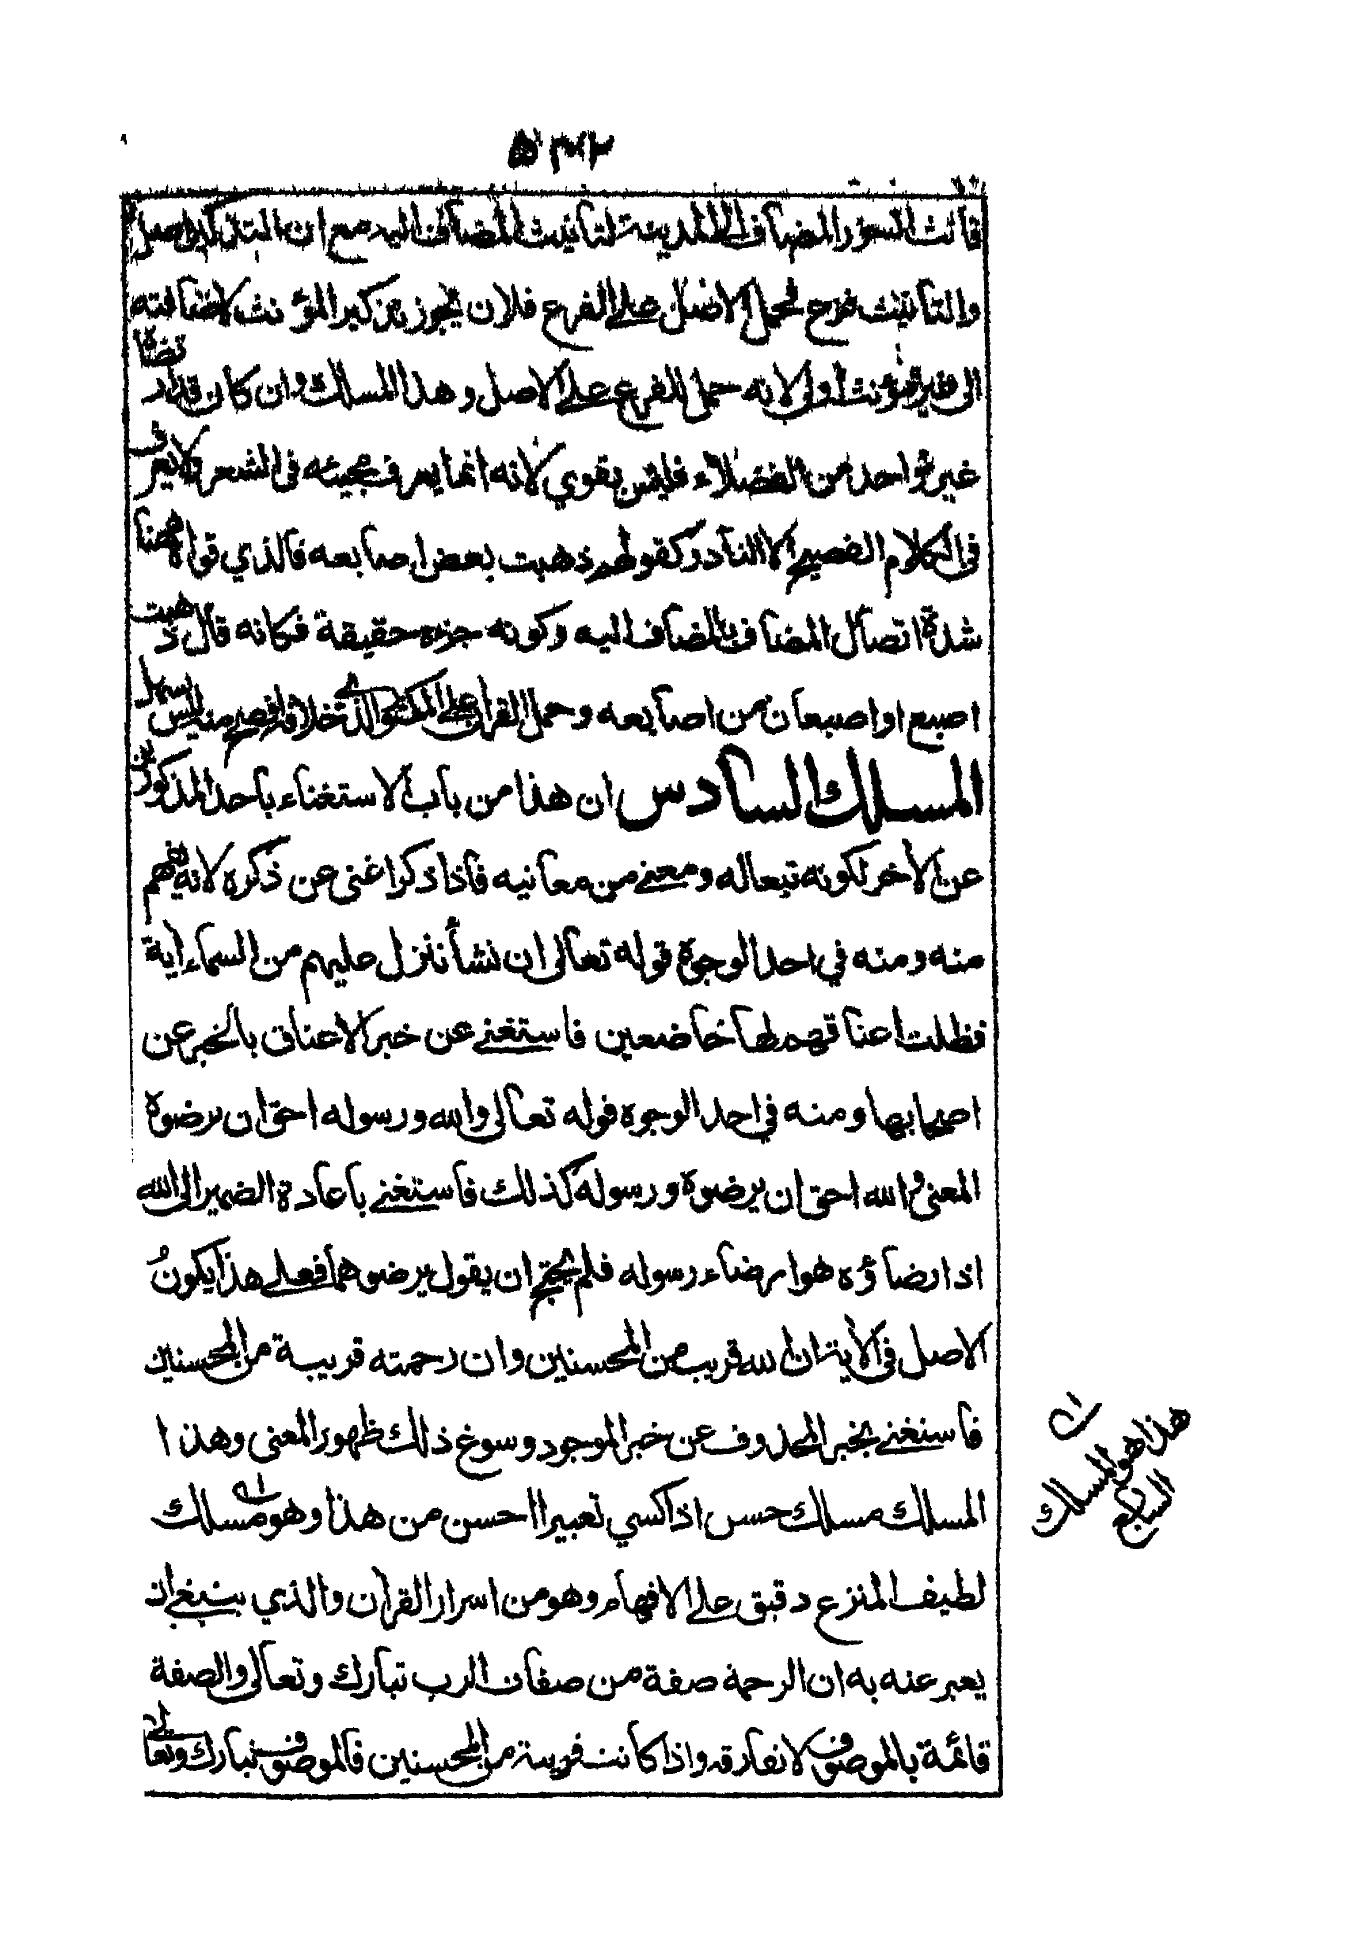 فأنث السور المضاف الى المدينة لتأنيث المضاف اليه مع ان التذكير اصل
والتأنيث فرع فحمل الاصل على الفرع فلان يجوز تذكير المؤنث لاضافته
الى غير مؤنث أولى لانه حمل للفرع على الاصل وهذا المسلك وان كان قد ارتضاه
غير واحد من الفضلاء فليس بقوي لانه انما يعرف مجيئه في الشعر ولا يعرف
في الكلام الفصيح الا النادر كقولهم ذهبت بعض اصابعه فالذي قواه ههنا
شدة اتصال المضاف بالمضاف اليه وكونه جزءه حقيقة فكانه قال ذهبت
اصبع او اصبعان من اصابعه وحمل القرآن على المكثور الذي خلافه افصح منه ليس بسهل
المسلك السادس ان هذا من باب الاستغناء باحد المذكورين
عن الآخر لكونه تبعا له ومعنى من معانيه فاذا ذكر اغنى عن ذكره لانه يفهم
منه ومنه في احد الوجوه قوله تعالى ان نشأ ننزل عليهم من السماء اية
فظلت اعناقهم لها خاضعين فاستغنى عن خبر الاعناق بالخبر عن
اصحابها ومنه في احد الوجوه قوله تعالى والله ورسوله احق ان يرضوه
المعنى والله احق ان يرضوه ورسوله كذلك فاستغنى باعادة الضمير الى الله
اذا رضاؤه هو ارضاء رسوله فلم يحتج ان يقول يرضوهما فعلى هذا يكون
الاصل في الآية ان الله قريب من المحسنين وان رحمته قريبة من المحسنين
فاستغنى بخبر المحذوف عن خبر الموجود وسوغ ذلك ظهور المعنى وهذا
المسلك مسلك حسن اذا كسي تعبيرا احسن من هذا وهو مسلك
لطيف المنزع دقيق على الافهام وهو من اسرار القرآن والذي ينبغي ان
يعبر عنه به ان الرحمة صفة من صفات الرب تبارك وتعالى والصفة
قائمة بالموصوف لا تفارقه واذا كانت قريبة من المحسنين فالموصوف تبارك وتعالى
هذا هو المسلك
السابع